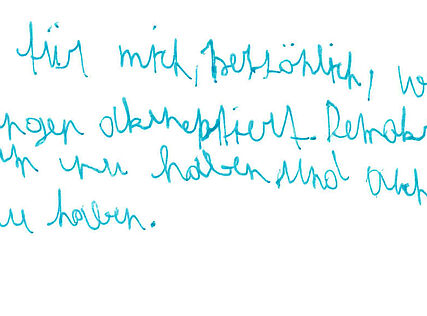 für mich, persönlich, w
ngen akzneptiert. Demok
in zu haben und auch
zu haben.